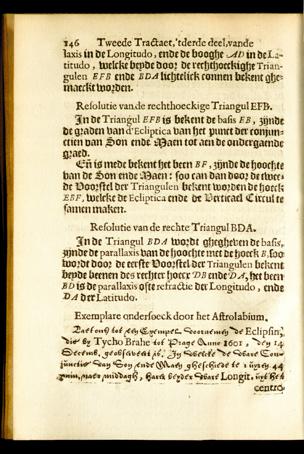 146 Tweede Tractaet, 'tderde deel, vande
laxis in de Longitudo, ende de booghe AD in de La-
titudo, welcke beyde door de rechthoeckighe Trian-
gulen EFB ende BDA lichtelick connen bekent ghe-
maeckt worden.
Resolutie van de rechthoeckige Triangul EFB.
In de Triangul EFB is bekent de basis EB, zijnde
de graden van d'Ecliptica van het punct der conjun-
ctien van Son ende Maen tot aen de ondergaende
graed.
Eñ is mede bekent het been BF, zijnde de hoochte
van de Son ende Maen: soo can dan door de twee-
de Voorstel der Triangulen bekent worden de hoeck
EBF, welcke de Ecliptica ende de Verticael Circul te
samen maken.
Resolutie van de rechte Triangul BDA.
In de Triangul BDA wordt ghegheven de basis,
zijnde de parallaxis van de hoochte met de hoeck B, soo
wordt door de eerste Voorstel der Triangulen bekent
beyde beenen des rechter hoecx DB ende DA, het been
BD is de parallaxis ofte refractie der Longitudo, ende
DA der Latitudo.
Exemplare ondersoeck door het Astrolabium.
Laet ons tot een Exempel voornemen de Eclipsin,
die by Tycho Brahe tot Prage Anno 1601, den 14
Decemb. geobserveert is. In welcke de ware Con-
junctie van Son ende Maen gheschiede te 1 uyren 44
min. naer middagh, haer beyder ware Longit. uyt het
centro